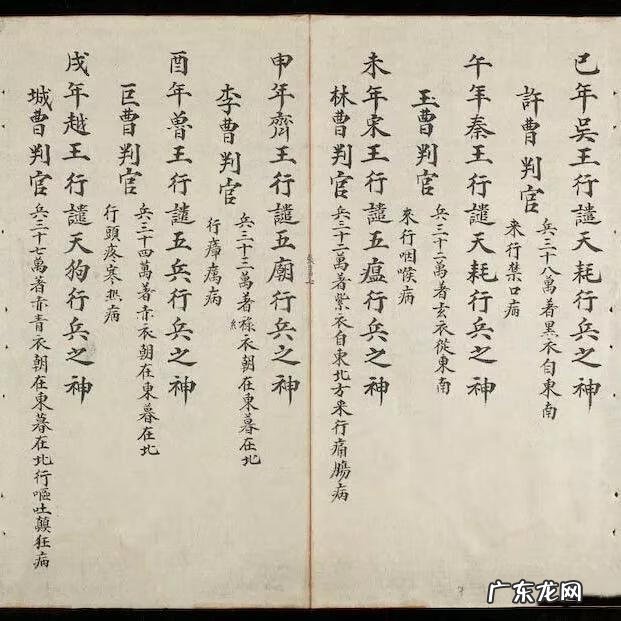 巳年吴王行譴天耗行兵之神
許曹判官
兵三十八萬著黑衣自東南
來行禁口病
午年秦王行譴天耗行兵之神
玉曹判官
兵三十二萬著玄衣從東南
來行咽喉病
未年宋王行譴五瘟行兵之神
林曹判官
兵三十二萬著紫衣自東北方來行痛腸病
申年齊王行譴五廟行兵之神
李曹判官
兵三十三萬著祿衣朝在東暮在北
行瘴癘病
酉年魯王行譴五兵行兵之神
巨曹判官
兵三十四萬著赤衣朝在東暮在北
行頭疼寒熱病
戌年越王行譴天狗行兵之神
城曹判官
兵三十七萬著赤青衣朝在東暮在北行嘔吐顛狂病
广东龙网